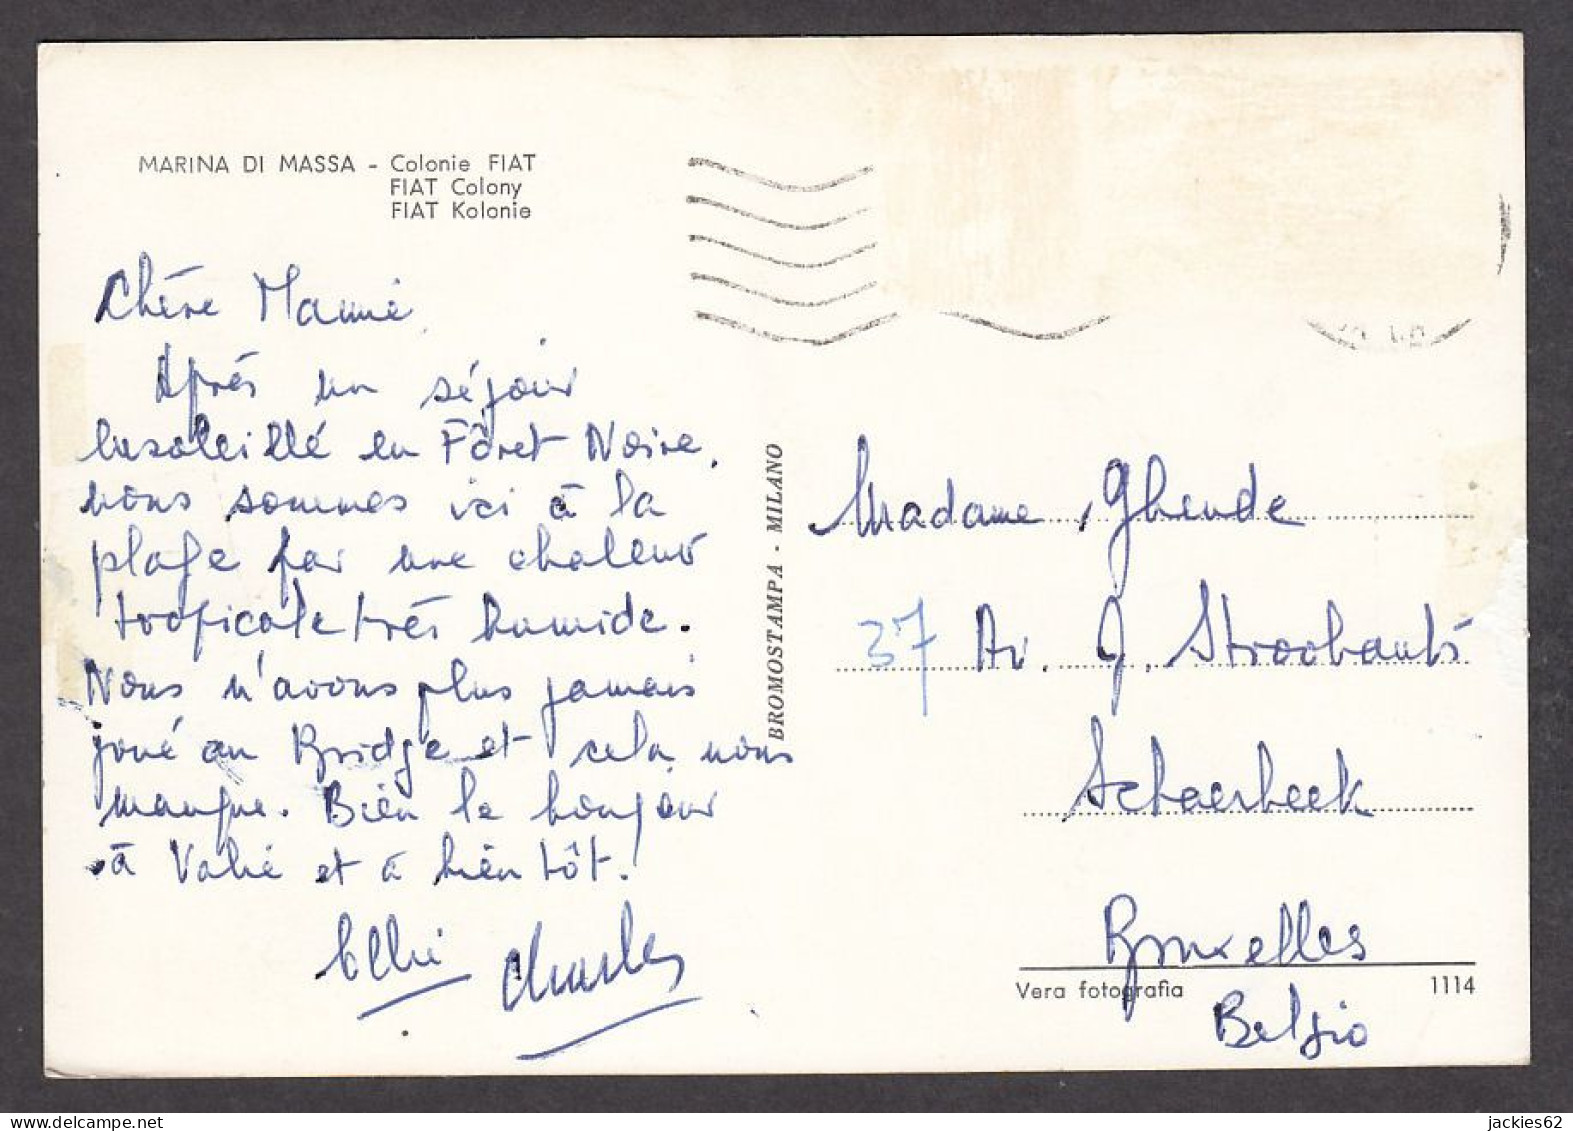 MARINA DI MASSA - Colonie FIAT
FIAT Colony
FIAT Kolonie
Chère Mamie,
Après un séjour
ensoleillé en Fôret Noire,
nous sommes ici à la
plage par une chaleur
tropicale très humide.
Nous n'avons plus jamais
joué au Bridge et cela nous
manque. Bien le bonjour
à Valié et à bientôt.
Charles
BROMOSTAMPA - MILANO
Madame Ghende
37 Av. J. Stroobants
Schaerbeek
Bruxelles
Belgio
Vera fotografia 1114
jackies62